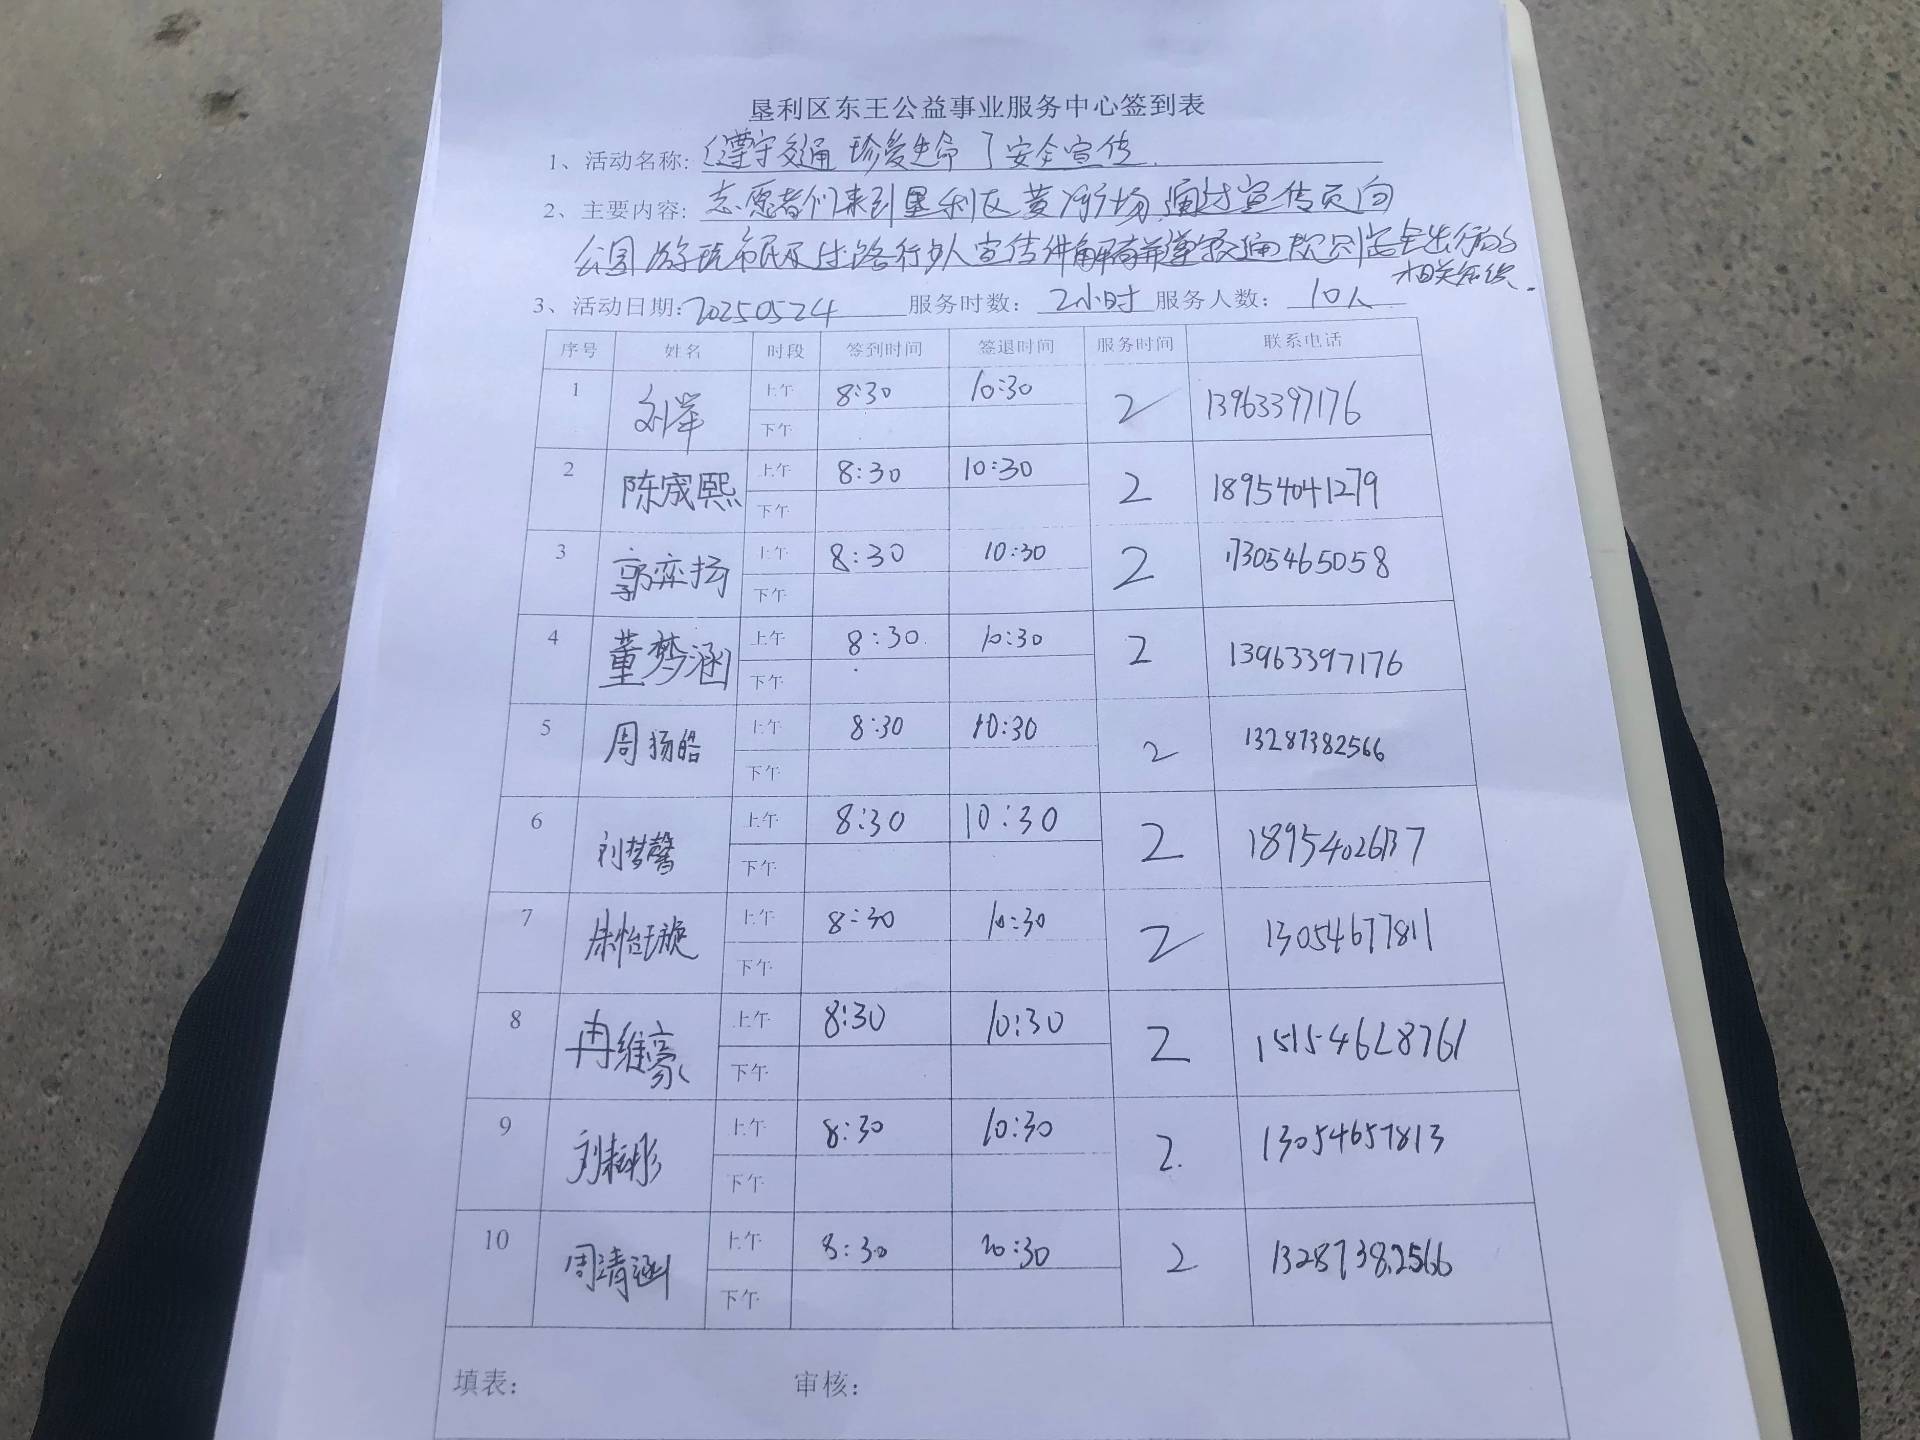 垦利区东王公益事业服务中心签到表
1、活动名称: 遵守交通 珍爱生命 安全宣传
2、主要内容: 志愿者们来到垦利区黄河广场 通过宣传页向
公园游玩市民及过路行人宣传讲解 安全出行的
相关知识.
3、活动日期: 20250524 服务时数: 2小时 服务人数: 10人
序号 姓名 时段 签到时间 签退时间 服务时间 联系电话
1 刘 上午 8:30 10:30 2 13963397176
下午
2 陈宬熙 上午 8:30 10:30 2 18954041279
下午
3 郭奕扬 上午 8:30 10:30 2 17305465058
下午
4 董梦涵 上午 8:30 10:30 2 13963397176
下午
5 周扬皓 上午 8:30 10:30 2 13287382566
下午
6 刘梦馨 上午 8:30 10:30 2 18954026137
下午
7 朱怡璇 上午 8:30 10:30 2 13054677811
下午
8 冉维豪 上午 8:30 10:30 2 15154628761
下午
9 刘 上午 8:30 10:30 2 13054657813
下午
10 周清涵 上午 8:30 10:30 2 13287382566
下午
填表: 审核: